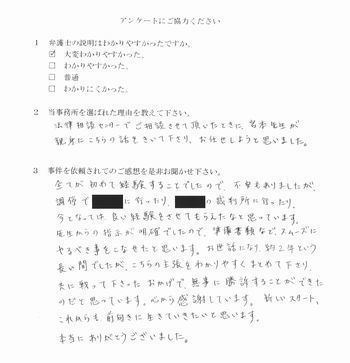 アンケートにご協力ください
1 弁護士の説明はわかりやすかったですか。
☑ 大変わかりやすかった。
□ わかりやすかった。
□ 普通
□ わかりにくかった。
2 当事務所を選ばれた理由を教えて下さい。
法律相談センターでご相談させて頂いたときに、宮本先生が
親身にこちらの話をきいて下さり、お任せしようと思いました。
3 事件を依頼されてのご感想を是非お聞かせ下さい。
全てが初めて経験することでしたので、不安もありましたが、
調停で に行ったり、 の裁判所に行ったり、
今となっては良い経験をさせてもらえたなと思っています。
先生からの指示が明確でしたので、準備書類など、スムーズに
やるべき事をこなせたと思います。お世話になり、約2年という
長い間でしたが、こちらの主張をわかりやすくまとめて下さり、
共に戦って下さったおかげで、無事に勝訴することができた
のだと思っています。心から感謝しています。新しいスタート、
これからも、前向きに生きていきたいと思います。
本当にありがとうございました。